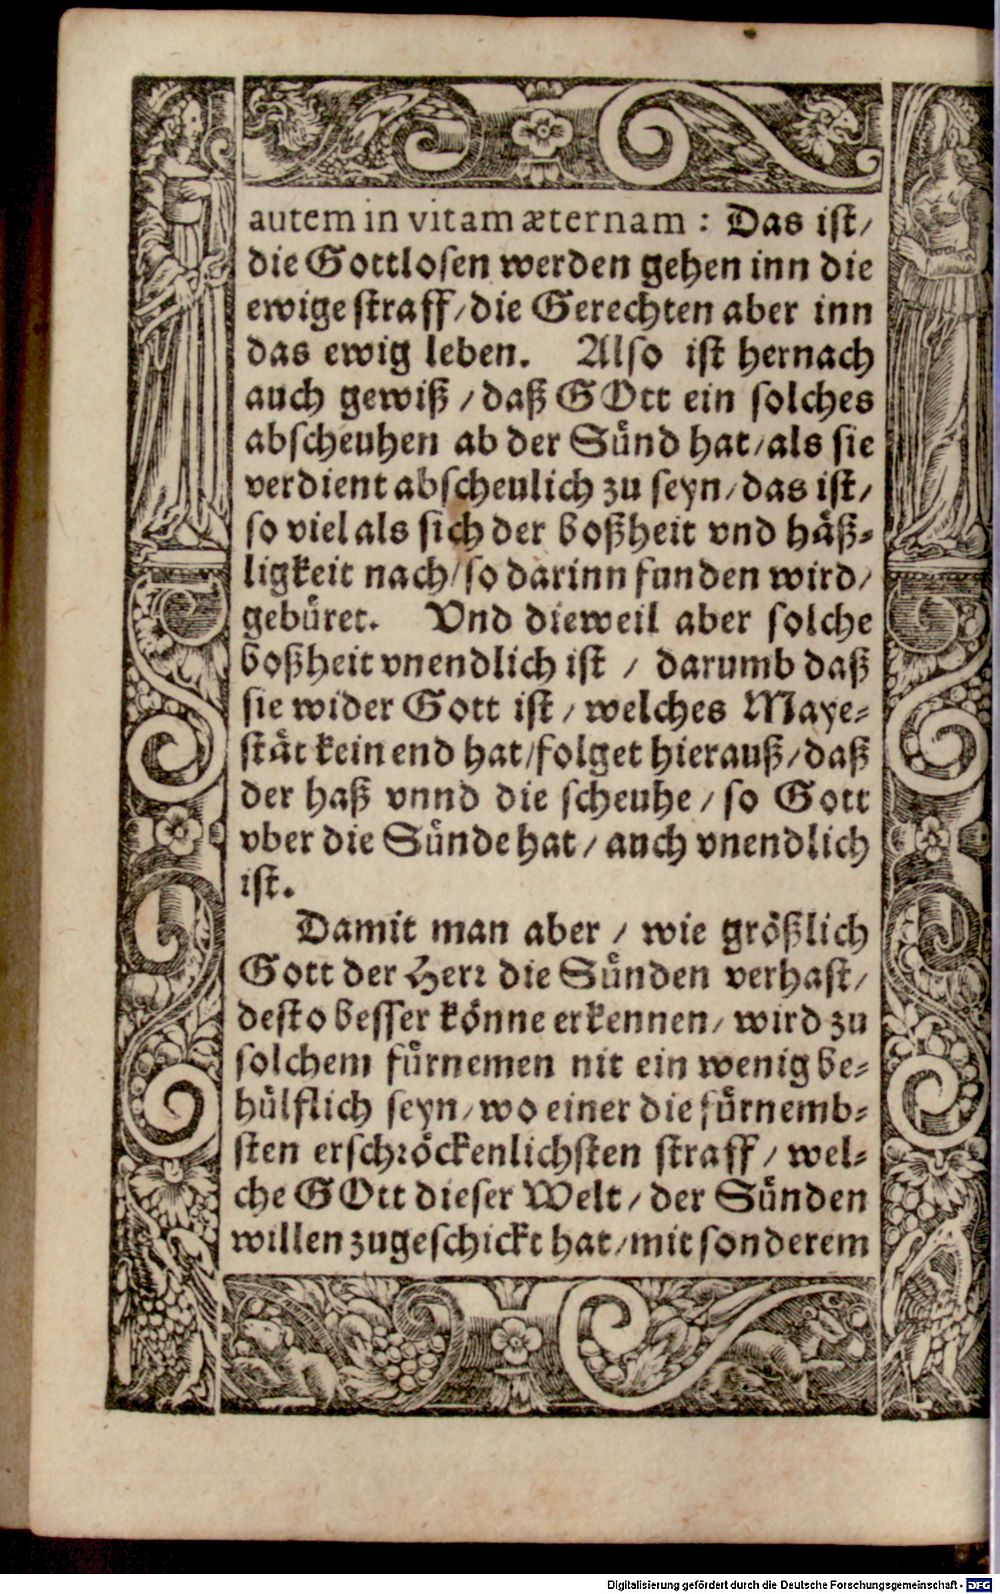 autem in vitam æternam : Das ist/
die Gottlosen werden gehen inn die
ewige straff/die Gerechten aber inn
das ewig leben. Also ist hernach
auch gewiß / daß GOtt ein solches
abscheuhen ab der Sünd hat/als sie
verdient abscheulich zu seyn/das ist/
so viel als sich der boßheit vnd häß-
ligkeit nach/so darinn funden wird/
gebüret. Vnd dieweil aber solche
boßheit vnendlich ist / darumb daß
sie wider Gott ist / welches Maye-
stät kein end hat/folget hierauß/daß
der haß vnnd die scheuhe / so Gott
vber die Sünde hat / auch vnendlich
ist.
Damit man aber / wie größlich
Gott der Herr die Sünden verhast/
desto besser könne erkennen/ wird zu
solchem fürnemen nit ein wenig be-
hülflich seyn/wo einer die fürnemb-
sten erschröckenlichsten straff/ wel-
che GOtt dieser Welt/ der Sünden
willen zugeschickt hat/mit sonderem
Digitalisierung gefördert durch die Deutsche Forschungsgemeinschaft - DFG